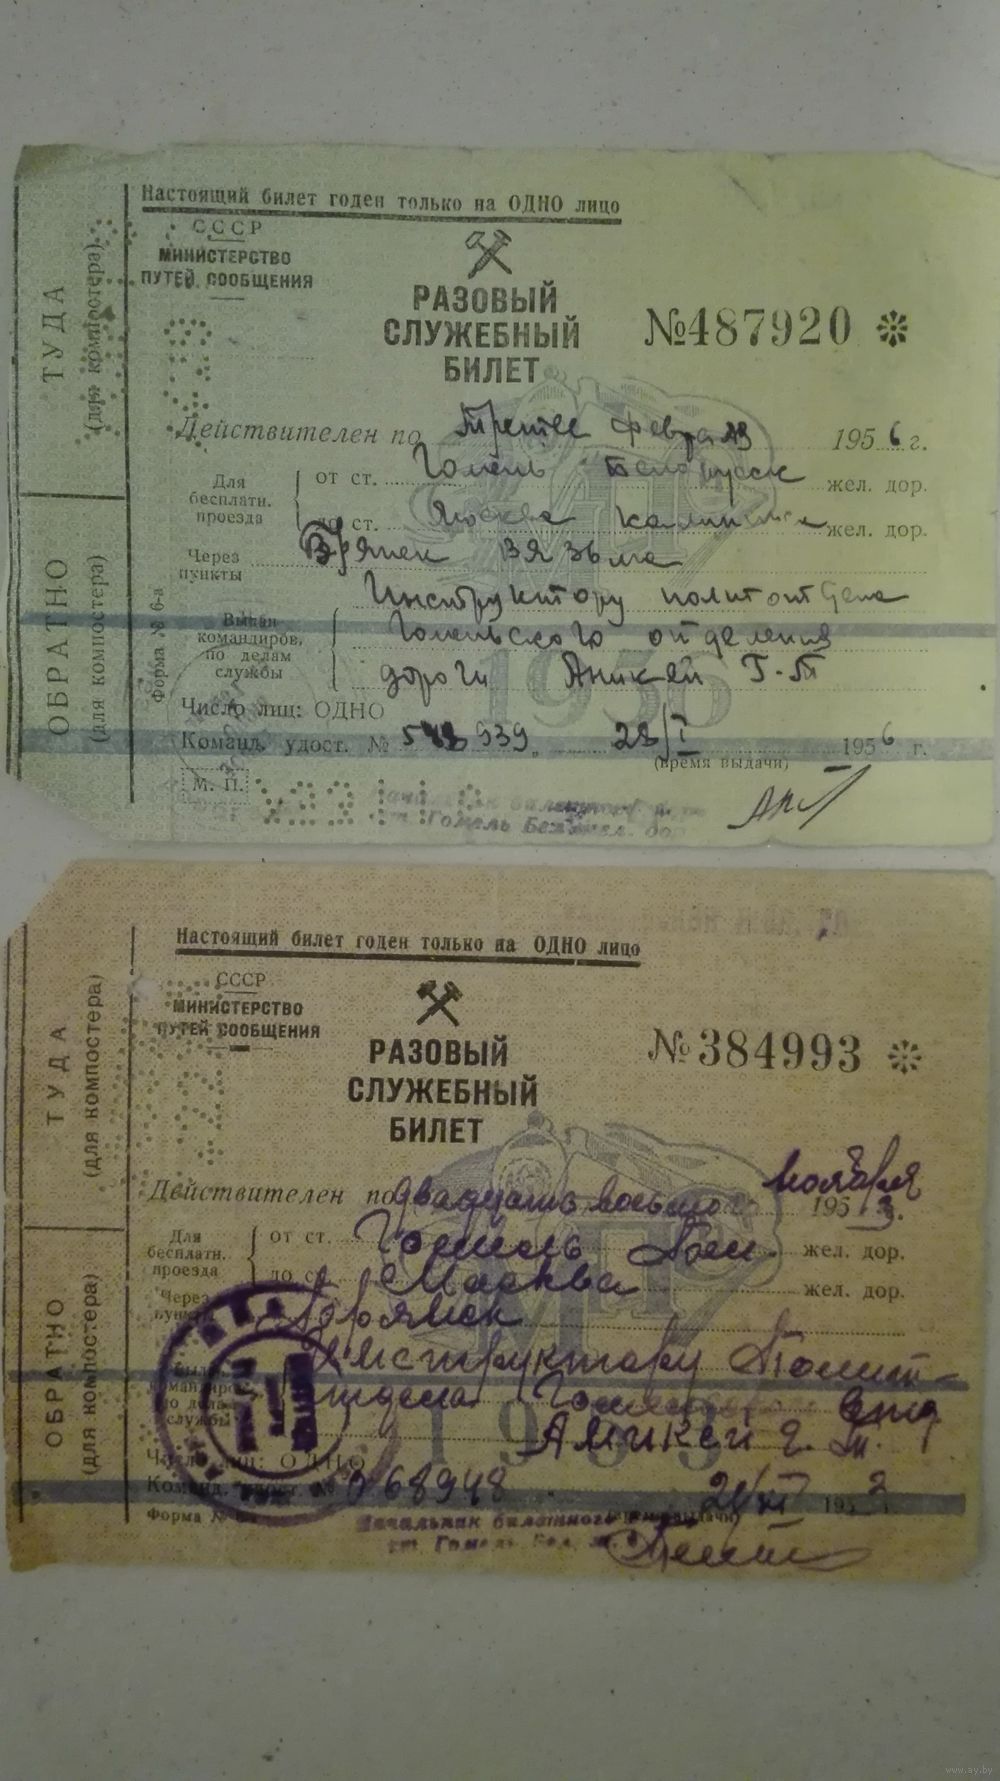 Настоящий билет годен только на ОДНО лицо
СССР
МИНИСТЕРСТВО
ПУТЕЙ СООБЩЕНИЯ
РАЗОВЫЙ
СЛУЖЕБНЫЙ
БИЛЕТ
№487920
ТУДА
(для компостера)
ОБРАТНО
(для компостера)
Форма № 6-а
Действителен по Третье февраля 1956 г.
Для бесплатн. проезда
от ст. Гомель Белорусск жел. дор.
до ст. Москва жел. дор.
Через пункты Брянск Вязьма
Выдан командиров. по делам службы
Инструктору политотдела
Гомельского отделения
дороги Аникей Г-Т
Число лиц: ОДНО
Команд. удост. № 939 28/I 1956 г.
(время выдачи)
М. П.
Начальник
ст. Гомель Бел. жел. дор.
1956
Настоящий билет годен только на ОДНО лицо
СССР
МИНИСТЕРСТВО
ПУТЕЙ СООБЩЕНИЯ
РАЗОВЫЙ
СЛУЖЕБНЫЙ
БИЛЕТ
№384993
ТУДА
(для компостера)
ОБРАТНО
(для компостера)
Действителен по двадцать восьмого ноября 1953.
Для бесплатн. проезда
от ст. Гомель Бел. жел. дор.
до ст. Москва жел. дор.
Через пункты Брянск
Инструктору Полит-
отдела Гомельского отд
Аникей Г. Т.
1953
Число лиц: ОДНО
Команд. удост. № 068948 1953
Форма №
Начальник билетного
ст. Гомель Бел.
www.ay.by